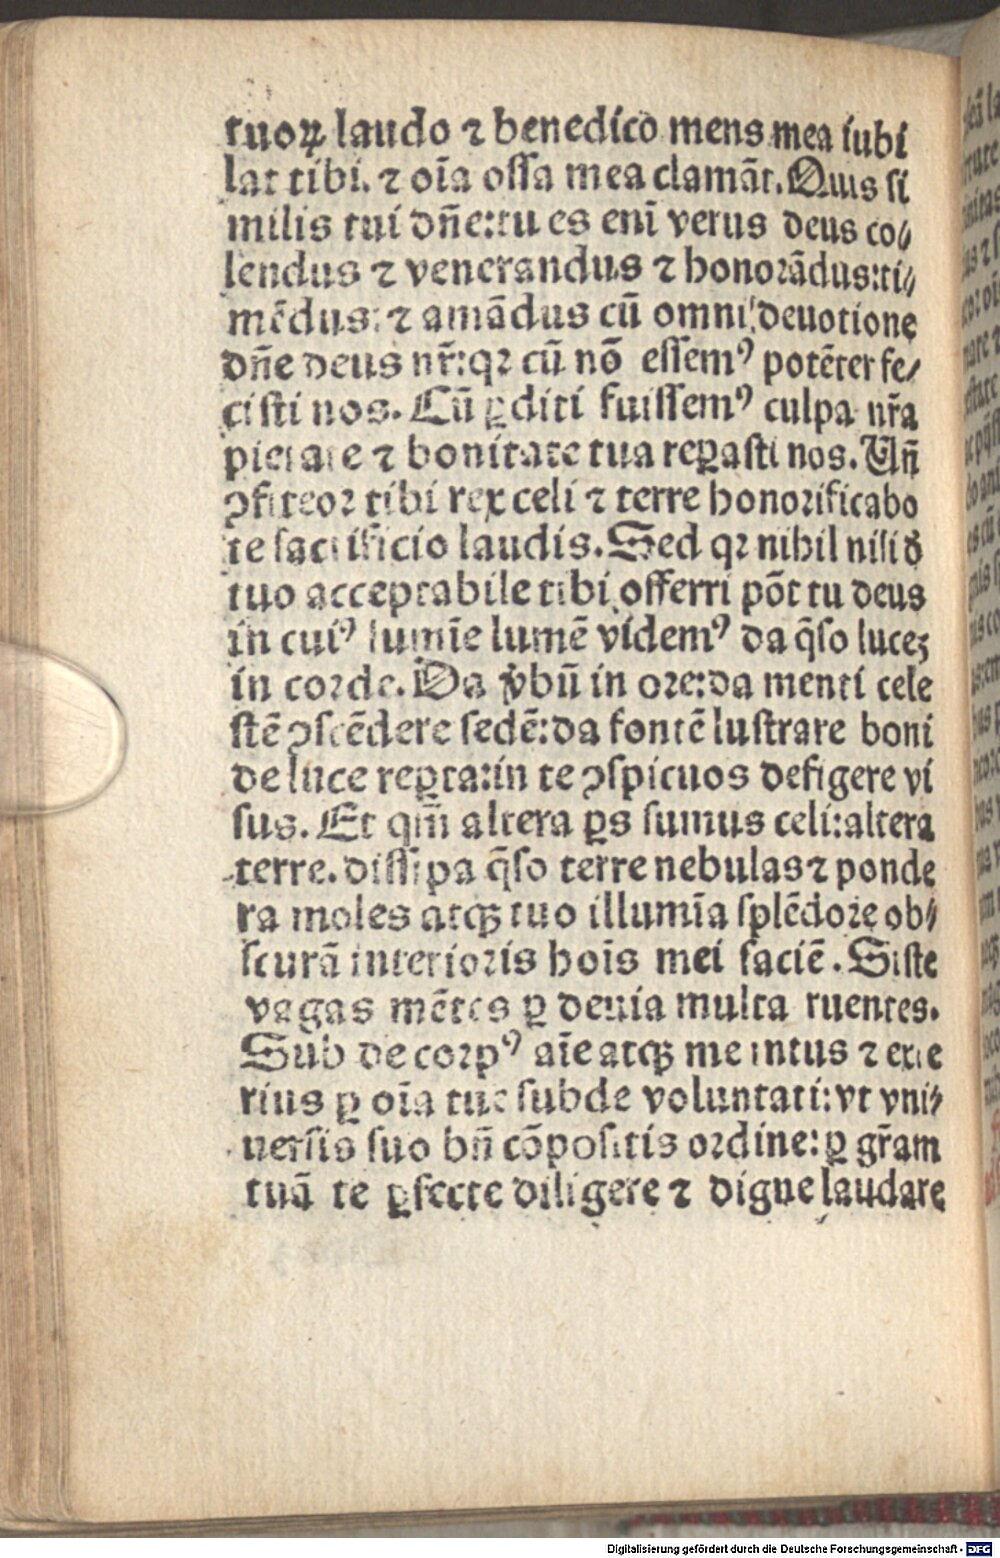 tuoꝝ laudo ⁊ benedico mens mea iubi
lat tibi. ⁊ oīa oſſa mea clamāt. Quis ſi
milis tui dn̄e: tu es enī verus deus co⸗
lendus ⁊ venerandus ⁊ honorādus: ti⸗
mēdus: ⁊ amādus cū omni deuotione
dn̄e deus nr̄: qꝛ cū nō eſſemꝰ potēter fe⸗
ciſti nos. Cū ꝑditi fuiſſemꝰ culpa nr̄a
pietate ⁊ bonitate tua reꝑaſti nos. Un̄
ꝯfiteor tibi rex celi ⁊ terre honorificabo
te ſacrificio laudis. Sed qꝛ nihil niſi đ
tuo acceptabile tibi offerri pōt tu deus
in cuiꝰ lumīe lumē videmꝰ da q̄ſo luceꝫ
in corde. Da v̄bū in ore: da menti cele
ſtē ꝯſcēdere ſedē: da fontē luſtrare boni
de luce reꝑta: in te ꝯſpicuos defigere vi
ſus. Et qm̄ altera ꝑs ſumus celi: altera
terre. diſſipa q̄ſo terre nebulas ⁊ ponde
ra moles atqꝫ tuo illumīa ſplēdore ob⸗
ſcurā interioris hoīs mei faciē. Siſte
vagas mētes ꝑ deuia multa ruentes.
Sub de corpꝰ aīe atqꝫ me intus ⁊ exte
rius ꝑ oīa tue ſubde voluntati: vt vni⸗
uerſis ſuo bn̄ cōpoſitis ordine: ꝑ gr̄am
tuā te ꝑfecte diligere ⁊ digne laudare
Digitalisierung gefördert durch die Deutsche Forschungsgemeinschaft - DFG